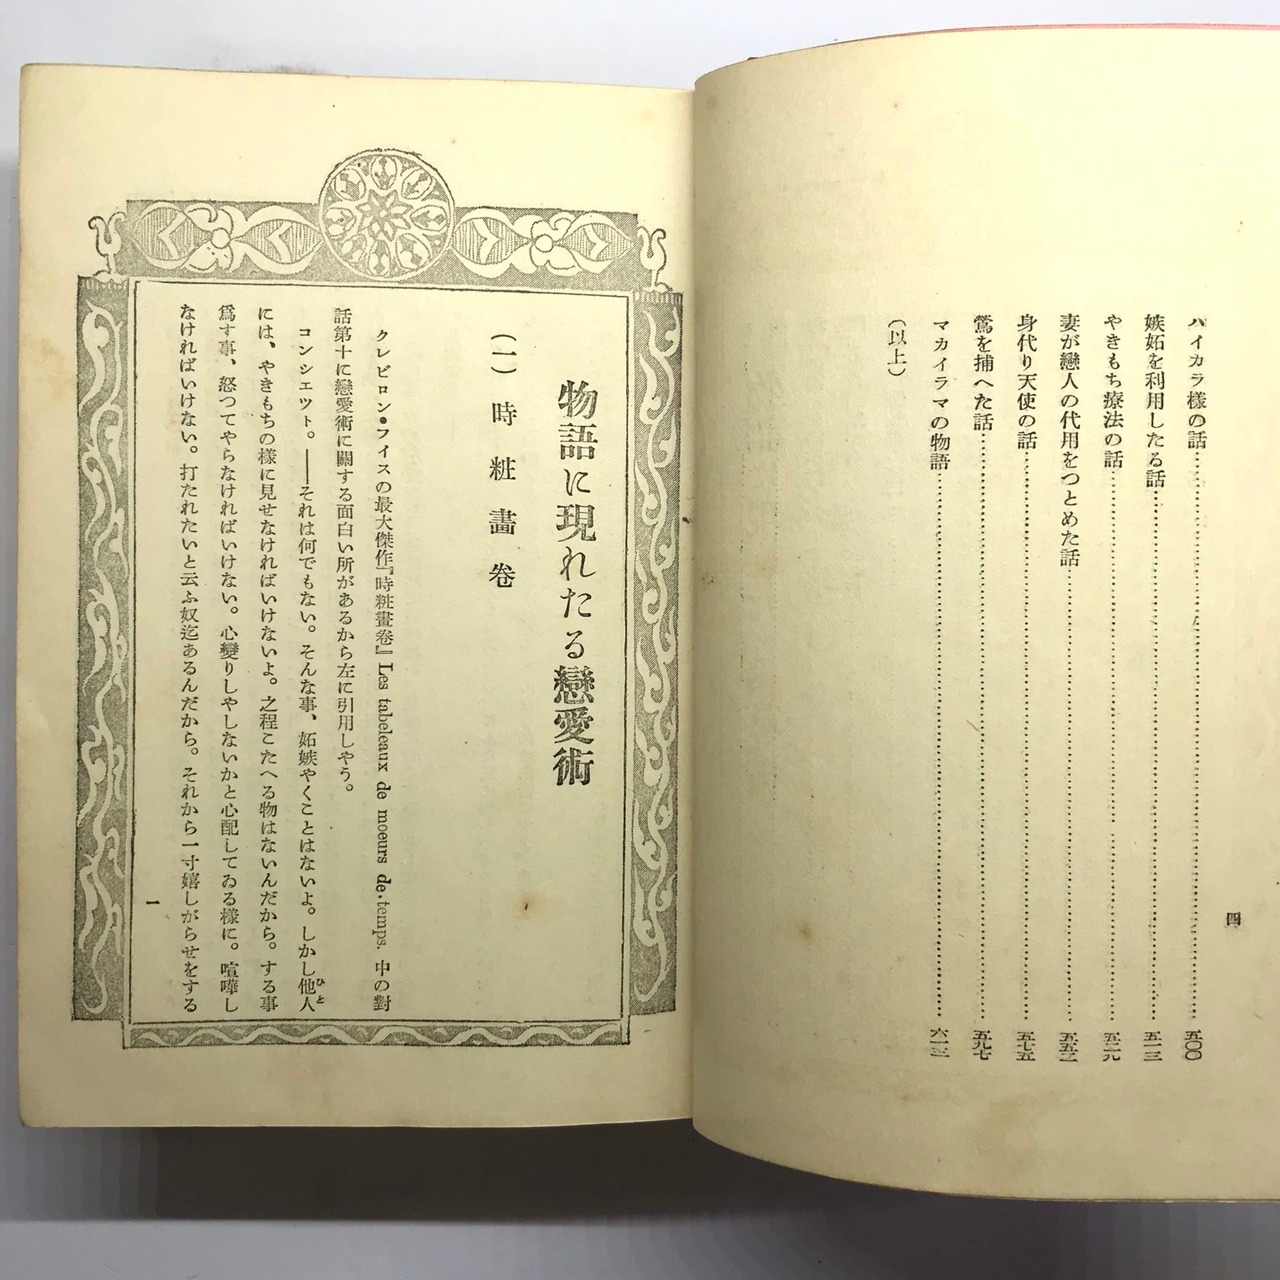 ハイカラ様の話……五〇〇
嫉妬を利用したる話……五一三
やきもち療法の話……五二九
妻が戀人の代用をつとめた話……五五二
身代り天使の話……五七五
鶯を捕へた話……五九七
マカイラマの物語……六一三
(以上)
四
物語に現れたる戀愛術
(一)時粧畵卷
クレビロン・フイスの最大傑作『時粧畫卷』Les tabeleaux de moeurs de temps. 中の對
話第十に戀愛術に關する面白い所があるから左に引用しやう。
コンシエツト。――それは何でもない。そんな事、妬嫉やくことはないよ。しかし他人
ひと
には、やきもちの樣に見せなければいけないよ。之程こたへる物はないんだから。する事
爲す事、怒つてやらなければいけない。心變りしやしないかと心配してゐる樣に。喧嘩し
なければいけない。打たれたいと云ふ奴迄あるんだから。それから一寸嬉しがらせをする
一